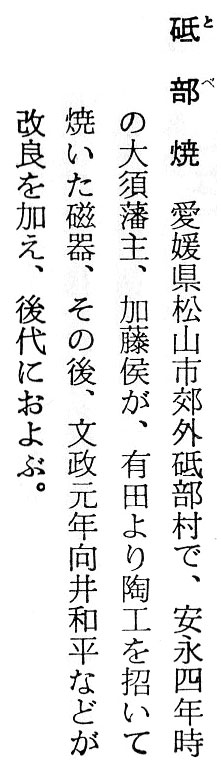 砥部焼 愛媛県松山市郊外砥部村で、安永四年時
の大須藩主、加藤侯が、有田より陶工を招いて
焼いた磁器、その後、文政元年向井和平などが
改良を加え、後代におよぶ。